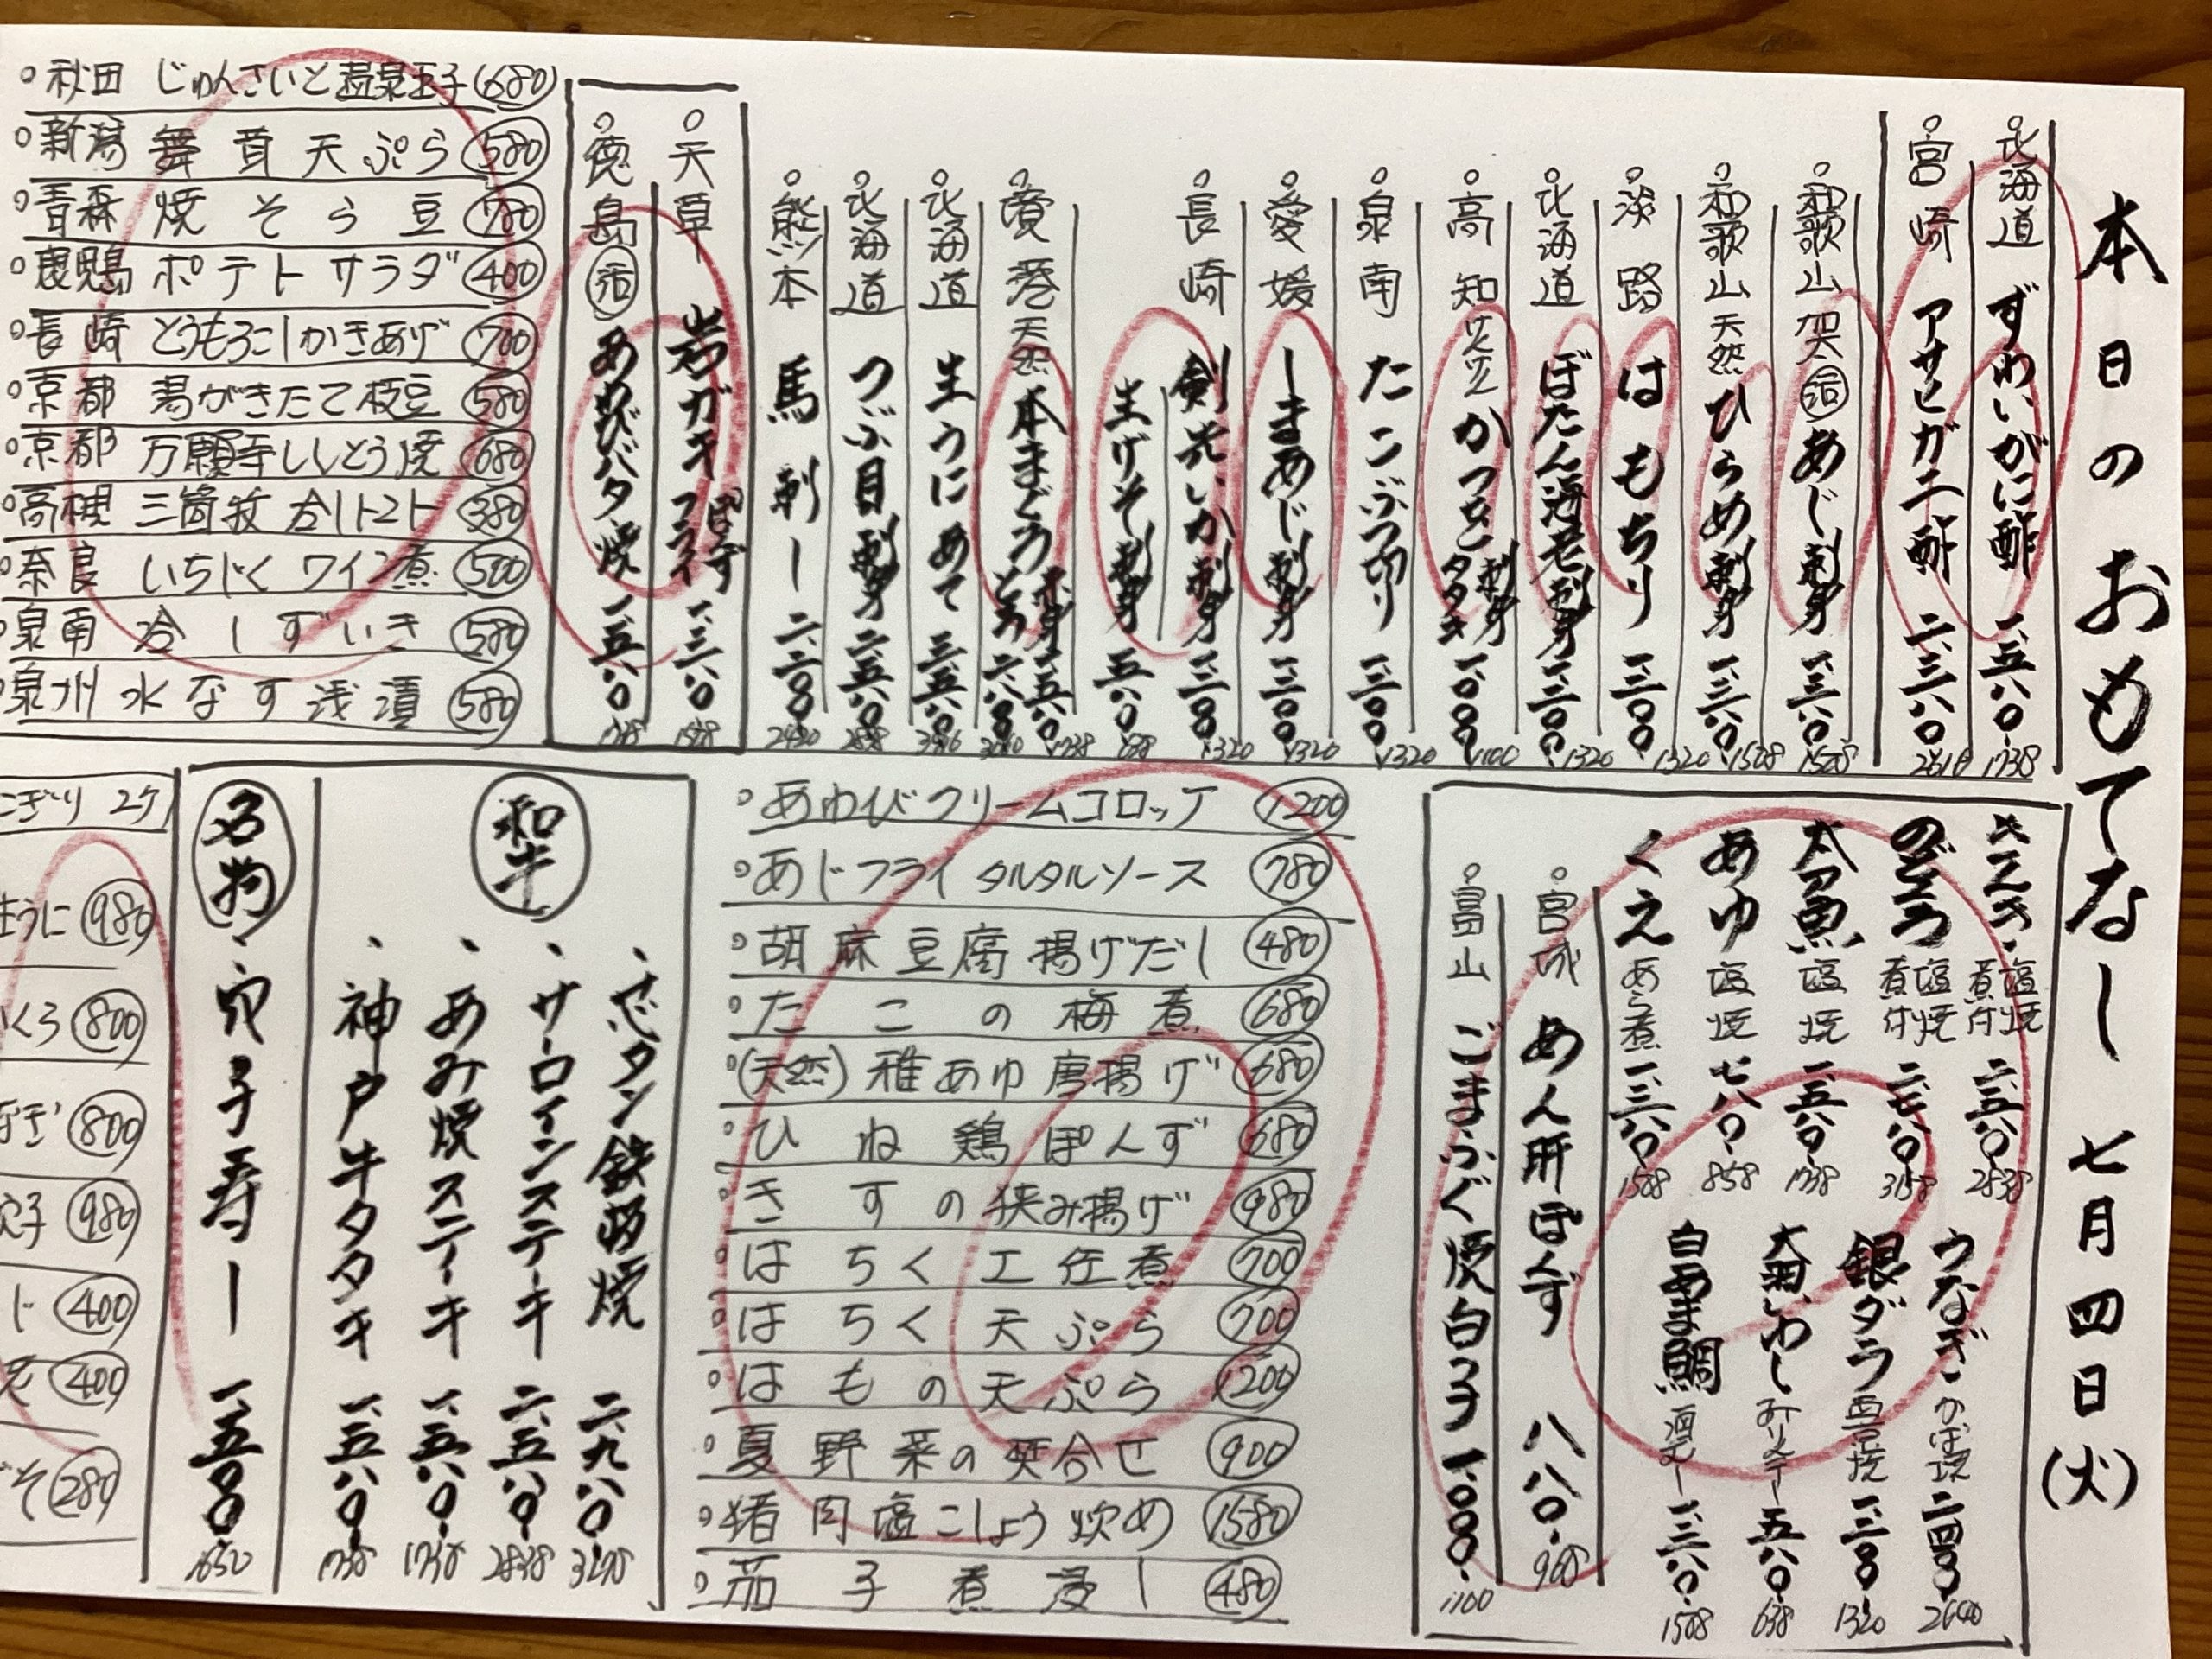 本日のおもてなし 七月四日(火)
北海道 ずわいがに酢 一、五八〇 1738
宮崎 アサヒガニ酢 二、三八〇 2618
和歌山 突 活 あじ 刺身 一、三八〇 1508
和歌山 天然 ひらめ 刺身 一、三八〇 1508
淡路 はもちり 一、二〇〇 1320
北海道 ぼたん海老 刺身 一、二〇〇 1320
高知 かつを 刺身 タタキ 一、〇〇〇 1100
泉南 たこぶつ切り 一、二〇〇 1320
愛媛 しまあじ 刺身 一、二〇〇 1320
長崎 剣先いか 刺身 一、二〇〇 1320
生げそ 刺身 五八〇 638
天然 本まぐろ 赤身 一、五八〇 1738
とろ 二、八〇〇 3080
北海道 生うにあて 三、五八〇
北海道 つぶ貝 刺身 二、五八〇
熊本 馬刺し 二、二〇〇 2420
天草 岩ガキ ぽんず フライ 一、三八〇 1518
徳島 活 あわびバタ焼 一、五八〇 1738
秋田 じゅんさいと温泉玉子 680
新潟 舞茸天ぷら 580
青森 焼そら豆 780
鹿児島 ポテトサラダ 400
長崎 とうもろこしかきあげ 700
京都 湯がきたて枝豆 580
京都 万願寺ししとう焼 680
高槻 三箇牧 冷しトマト 380
奈良 いちじくワイン煮 500
泉南 冷しずいき 580
泉州 水なす浅漬 580
塩焼 煮付 二、五八〇 2838
のどぐろ 塩焼 煮付 3158
太刀魚 塩焼 一、五八〇 1738
あゆ 塩焼 七八〇 858
くえ あら煮 一、三八〇 1508
うなぎ かば焼 二、四〇〇 2640
銀ダラ 西京焼 一、二〇〇 1320
大羽いわし 五八〇 638
白あま鯛 酒むし 一、三八〇 1508
宮城 あん肝ぽんず 八八〇 968
富山 ごまふぐ焼白子 一、〇〇〇 1100
あわびクリームコロッケ 1200
あじフライ タルタルソース 780
胡麻豆腐揚げだし 480
たこの梅煮 680
(天然)稚あゆ唐揚げ 680
ひね鶏ぽんず 680
きすの挟み揚げ 980
はちく土佐煮 700
はちく天ぷら 700
はもの天ぷら 1200
夏野菜の炊合せ 900
猪肉塩こしょう炒め 1580
茄子煮浸し 480
和牛
芯タン鉄板焼 二、九八〇 3278
サーロインステーキ 二、五八〇 2838
あみ焼ステーキ 一、五八〇 1738
神戸牛タタキ 一、五八〇 1738
名物
穴子寿し 一、五〇〇 1650
こぎり 2ケ
生うに 980
いくら 800
なぎ 800
穴子 980
ト 400
400
そ 280